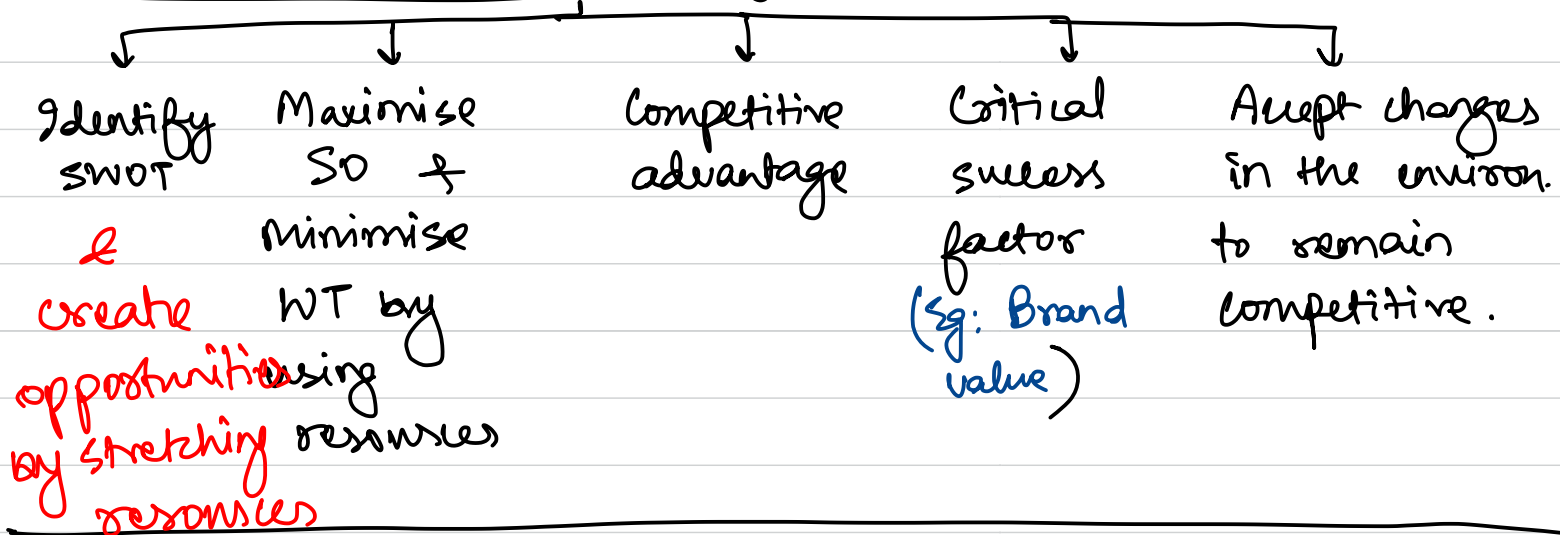 Identify
SWOT
&
create
opportunities
by stretching
resources
Maximise
SO &
Minimise
WT by
using
resources
Competitive
advantage
Critical
success
factor
(Eg: Brand
value)
Accept changes
in the environ.
to remain
competitive.